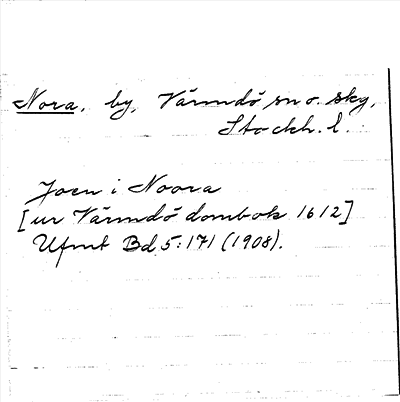 Nora, by, Värmdö sn o. sky,
Stockh. l.
Joen i Noora
[ur Värmdö dombok 1612]
Ufmt Bd 5:171 (1908).